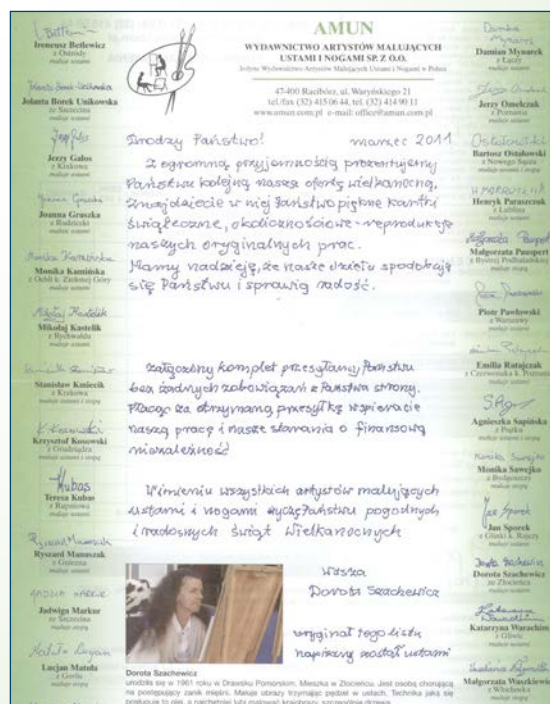 Ireneusz Betlewicz
z Ostródy
maluje ustami
Jolanta Borek Unikowska
ze Szczecina
maluje ustami
Jerzy Galos
z Krakowa
maluje ustami
Joanna Gruszka
z Rudziczki
maluje ustami
Monika Kamińska
z Ochli k. Zielonej Góry
maluje ustami
Mikołaj Kastelik
z Rychwałdu
maluje ustami
Stanisław Kmiecik
z Krakowa
maluje ustami i stopą
Krzysztof Kosowski
z Grudziądza
maluje ustami
Teresa Kubas
z Rapniowa
maluje ustami
Ryszard Manuszak
z Gniezna
maluje ustami
Jadwiga Markur
ze Szczecina
maluje stopą
Lucjan Matula
z Gorlic
maluje stopą
AMUN
WYDAWNICTWO ARTYSTÓW MALUJĄCYCH
USTAMI I NOGAMI SP. Z O.O.
Jedyne Wydawnictwo Artystów Malujących Ustami i Nogami w Polsce
47-400 Racibórz, ul. Waryńskiego 21
tel./fax (32) 415 06 44, tel. (32) 414 90 11
www.amun.com.pl e-mail: office@amun.com.pl
Drodzy Państwo! marzec 2011
Z ogromną przyjemnością prezentujemy
Państwu kolejną naszą ofertę wielkanocną.
Znajdziecie w niej Państwo piękne kartki
świąteczne, okolicznościowe - reprodukcje
naszych oryginalnych prac.
Mamy nadzieję, że nasze dzieła spodobają
się Państwu i sprawią radość.
Załączony komplet przesyłamy Państwu
bez żadnych zobowiązań z Państwa strony.
Płacąc za otrzymaną przesyłkę wspieracie
naszą pracę i nasze starania o finansową
niezależność
W imieniu wszystkich artystów malujących
ustami i nogami życzę Państwu pogodnych
i radosnych świąt Wielkanocnych
Wasza
Dorota Szachewicz
oryginał tego listu
napisany został ustami
Dorota Szachewicz
urodziła się w 1961 roku w Drawsku Pomorskim. Mieszka w Złocieńcu. Jest osobą chorującą
na postępujący zanik mięśni. Maluje obrazy trzymając pędzel w ustach. Technika jaką się
posługuje to olej, a najchętniej lubi malować krajobrazy, szczególnie drzewa.
Damian Mynarek
z Łączy
maluje ustami
Jerzy Omelczuk
z Poznania
maluje ustami
Bartosz Ostałowski
z Nowego Sącza
maluje ustami i stopą
Henryk Paraszczuk
z Lublina
maluje ustami
Małgorzata Paupert
z Bystrej Podhalańskiej
maluje stopą
Piotr Pawłowski
z Warszawy
maluje ustami
Emilia Ratajczak
z Czerwonaka k. Poznania
maluje ustami
Agnieszka Sapińska
z Pucka
maluje ustami i stopą
Monika Sawejko
z Bydgoszczy
maluje stopą
Jan Sporek
z Glinki k. Rajczy
maluje ustami
Dorota Szachewicz
ze Złocieńca
maluje ustami
Katarzyna Warachim
z Gliwic
maluje stopą
Małgorzata Waszkiewicz
z Włochówka
maluje stopą